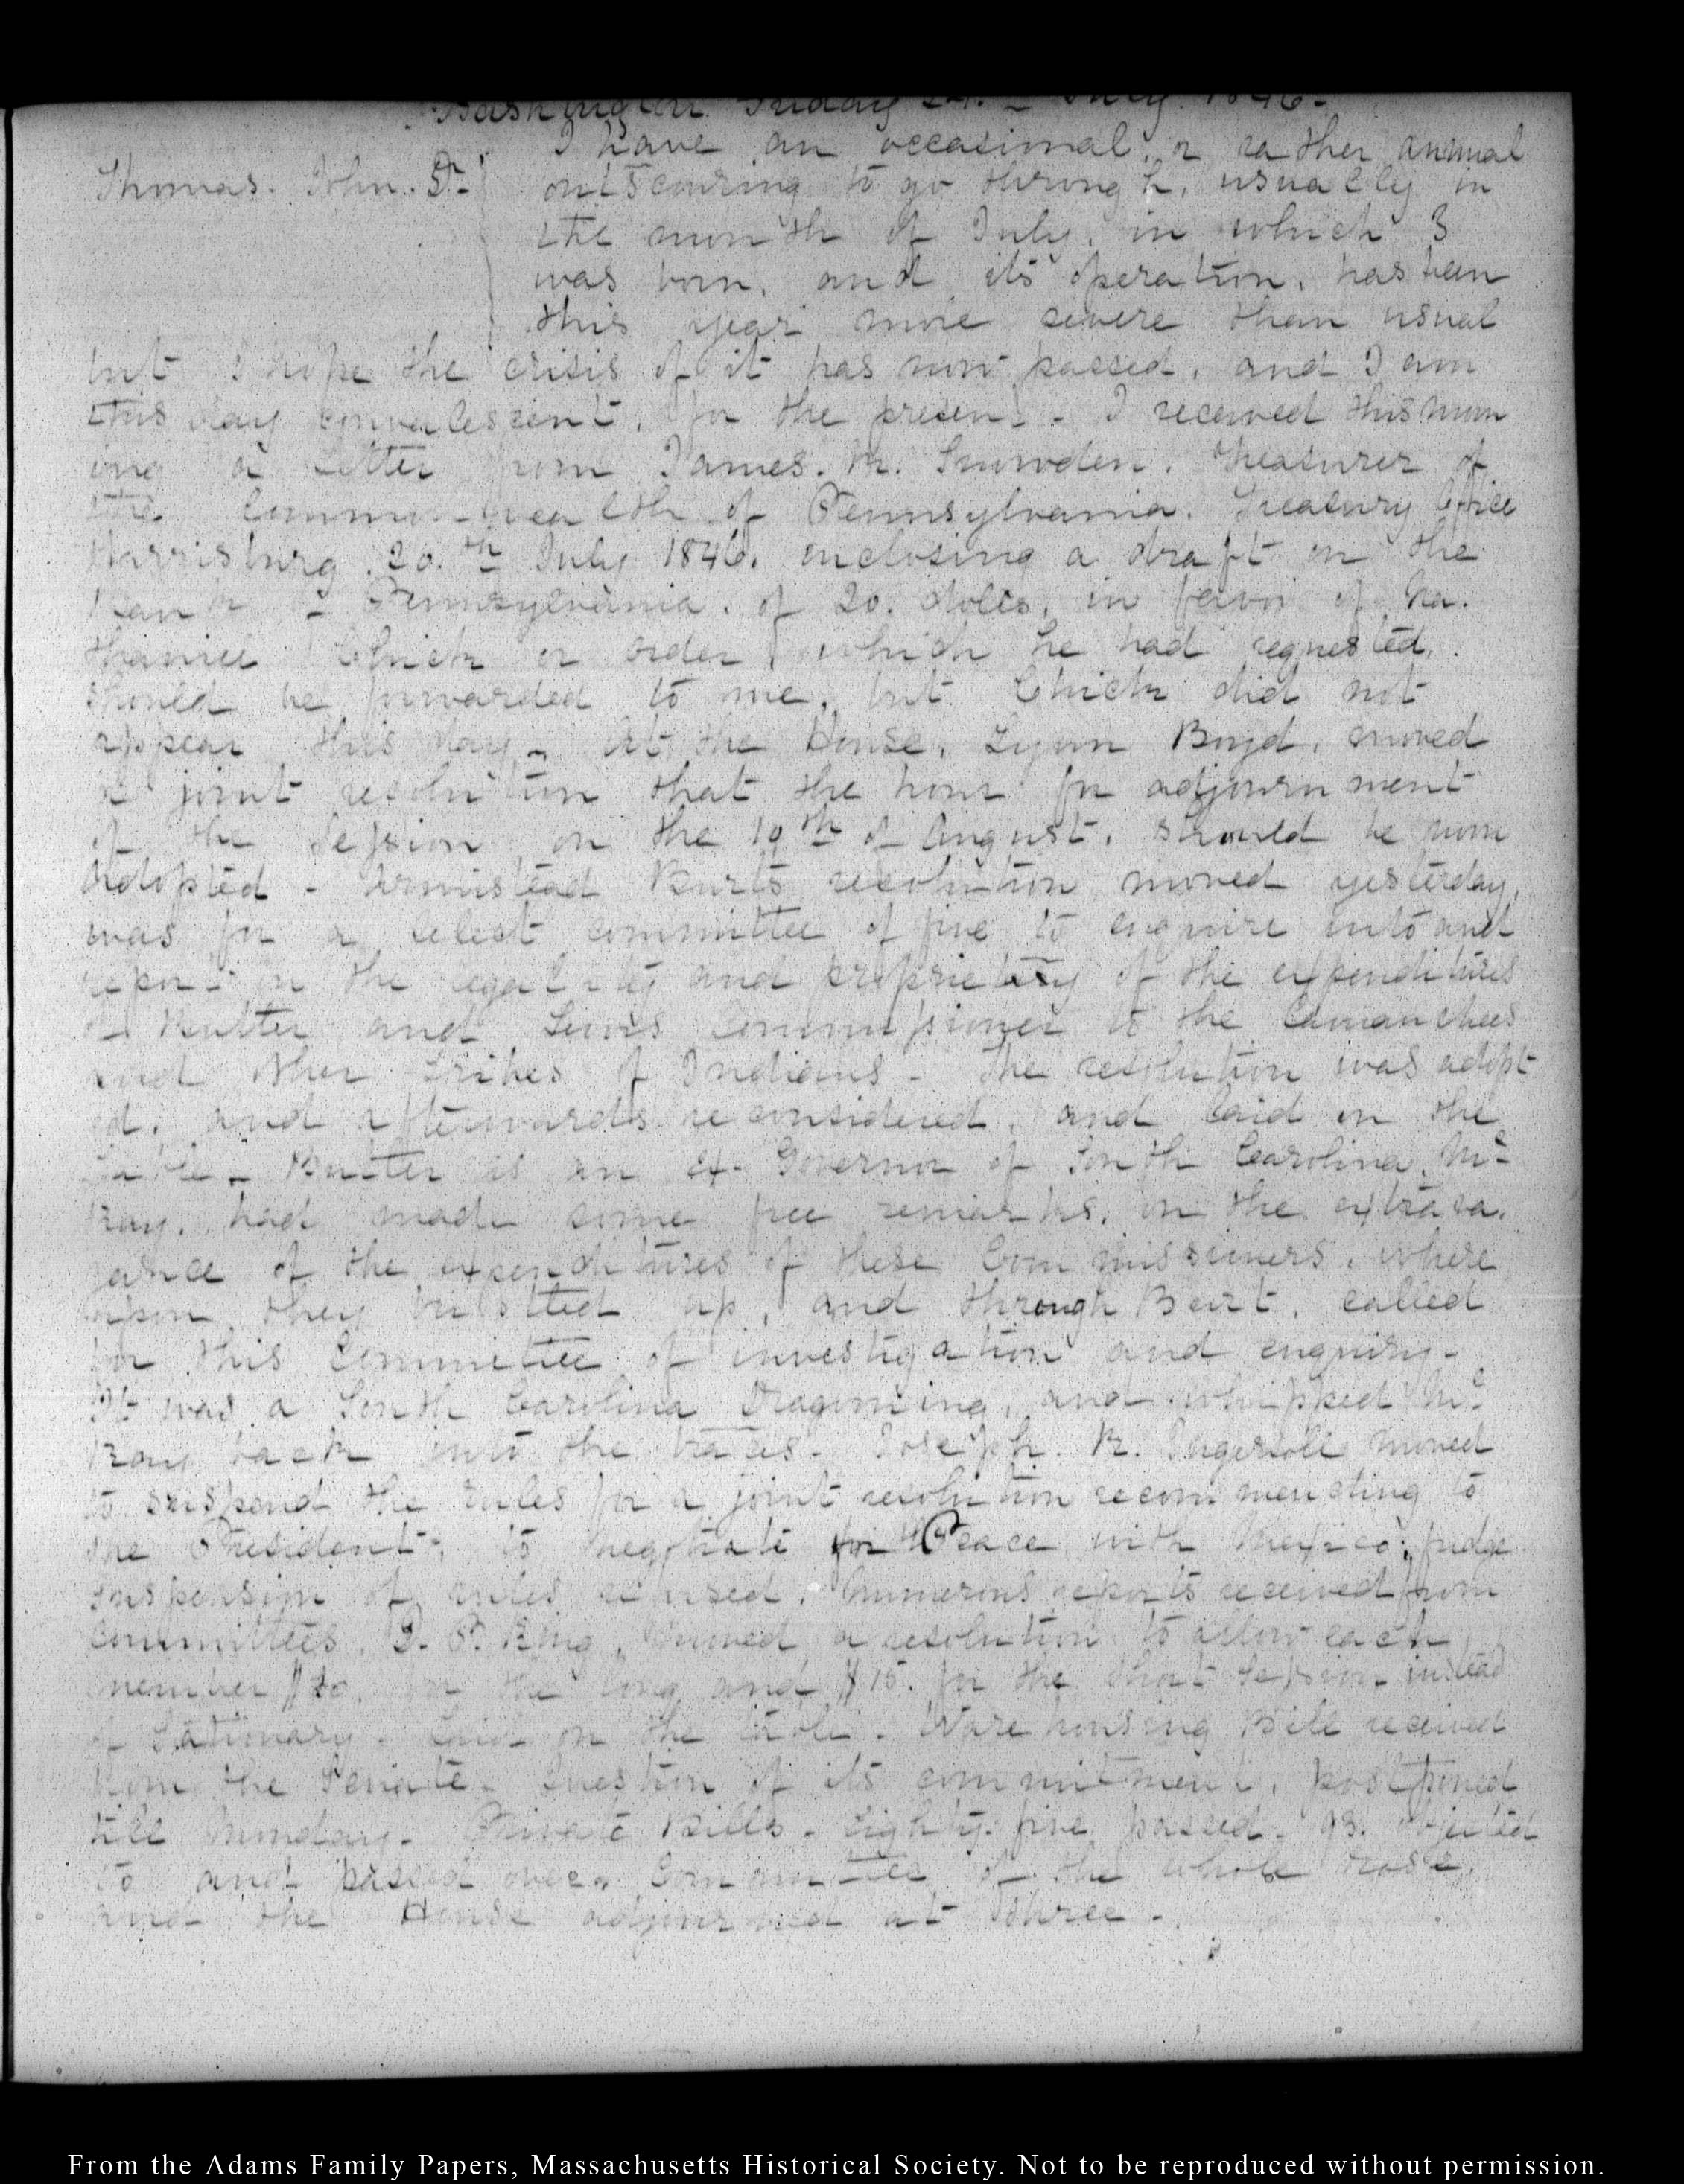 Washington Friday 24. July 1846.
I have an occasional, or rather annual
Thomas. John. F. outscouring to go through, usually in
the month of July, in which I
was born, and its operation, has been
this year more severe than usual
but I hope the crisis of it has now passed, and I am
this day convalescent, for the present. I received this morn
ing a letter from James. R. Snowden. Treasurer of
the Common-wealth of Pennsylvania. Treasury Office
Harrisburg 20.th July 1846. enclosing a draft on the
Bank Pennsylvania. of 20. dolls, in favor of Na.
thaniel Chick or order which he had requested.
should be forwarded to me, but Chick did not
appear this day. At the House, Lynn Boyd, moved
a joint resolution that the hour for adjournment
of the Session on the 10th of August, should be noon
adopted. Armistead Burt's resolution moved yesterday,
was for a select committee of five to enquire into and
report on the legality and propriety of the expenditures
of Butler and Lewis Commissioner to the Camanchees
and other tribes of Indians. The resolution was adopt
ed, and afterwards reconsidered, and laid on the
table. Butler is an ex. Governor of South Carolina. Mc
Kay, had made some free remarks, on the extrava.
gance of the expenditures of these Commissioners, where
upon they bristled up, and through Burt, called
for this Committee of investigation and enquiry.
It was a South Carolina Dragooning, and whipped Mc
Kay back into the traces. Joseph. R. Ingersoll moved
to suspend the rules for a joint resolution recommending to
the President, to negotiate for Peace with Mexico,
suspension of rules refused. Numerous reports received from
committees. P. King, moved a resolution to allow each
member $20. for the long and $15. for the short Session instead
of Stationary. Laid on the table. Ware housing Bill received
from the Senate. Question of its commitment, postponed
till Monday. Private Bills. Eighty-five passed. 93. objected
to and passed over. Committee of the whole rose,
and the House adjourned at three.
From the Adams Family Papers, Massachusetts Historical Society. Not to be reproduced without permission.